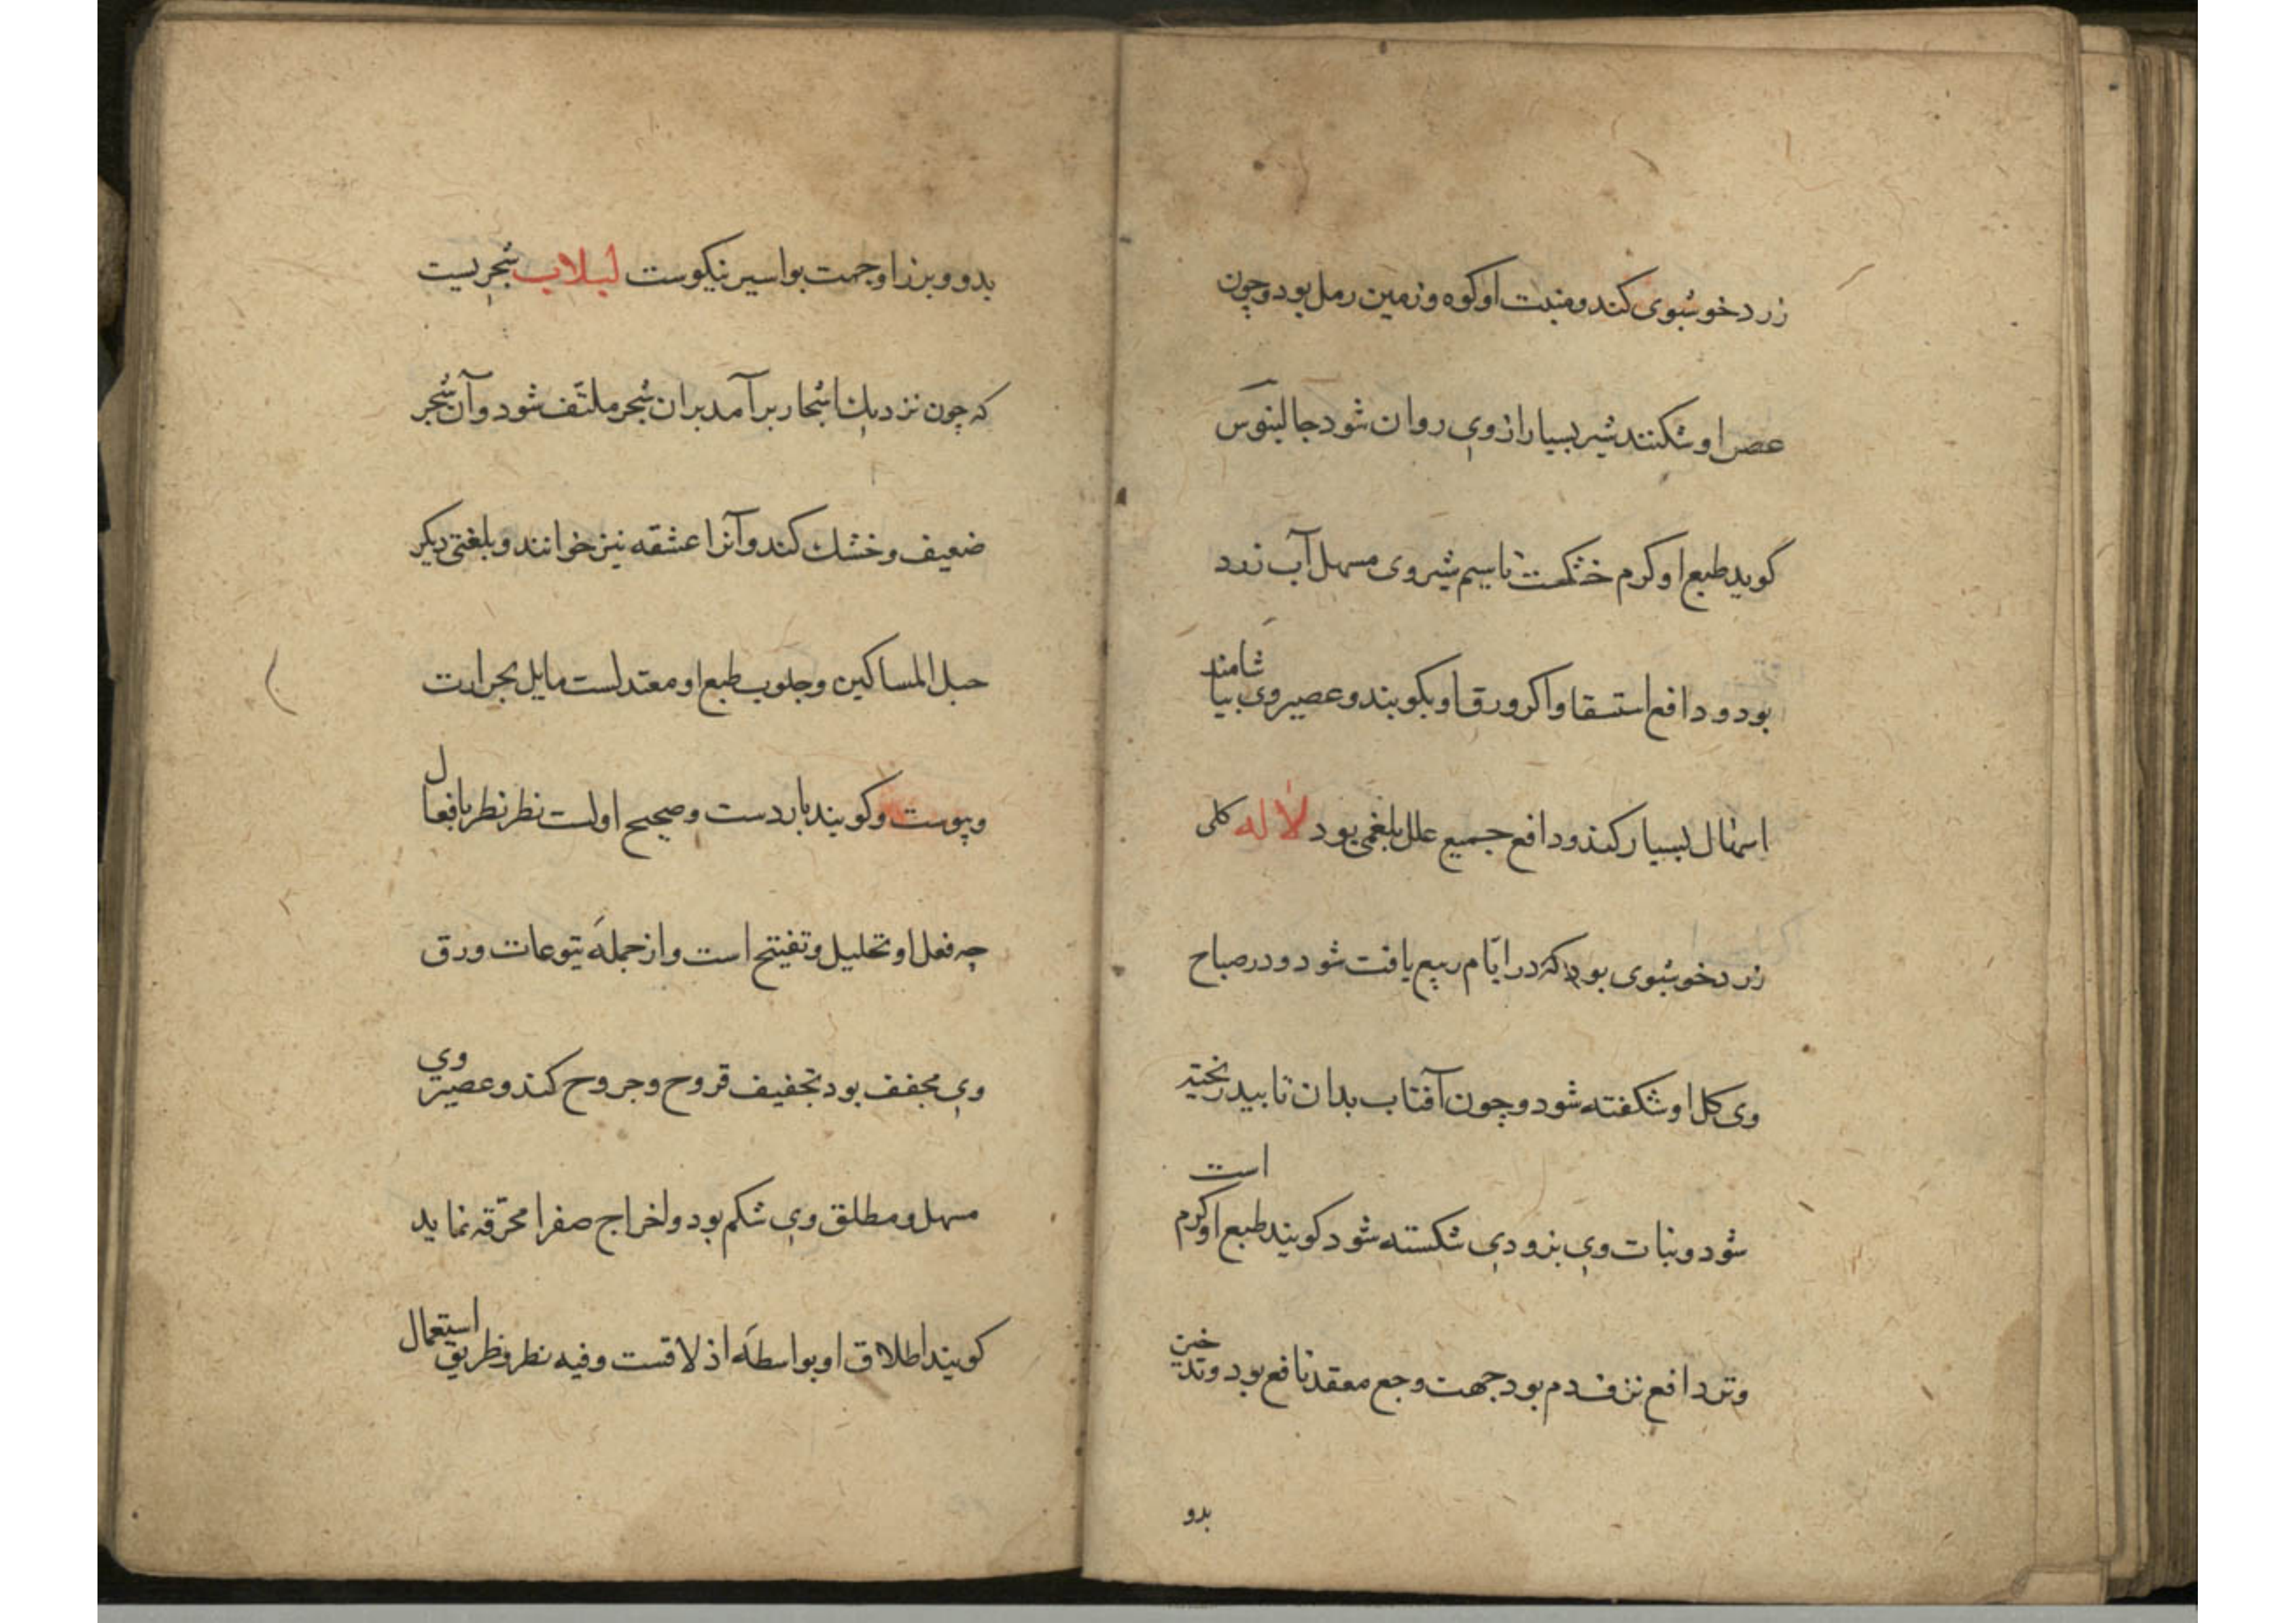 زرد خوشبوی کند و منبت او کوه و زمین رمل بود و چون
عصن او شکنند شیر بسیار از وی روان شود جالینوس
کوید طبع او کرم خشکست تا سیم شیر وی مسهل آب زرد
بود و دافع استسقا و اکر ورق او بکویند و عصیر وی بیاشامند
اسهال بسیار کند و دافع جمیع علل بلغمی بود لاله کلی
زرد خوشبوی بود که در ایّام ربیع یافت شود و در صباح
وی کل او شکفته شود و چون آفتاب بدان تابید ریخته
شود و نبات وی بزودی شکسته شود کویند طبع او کرم است
و تر دافع نزف دم بود جهت وجع مقعد نافع بود و تدخین
بدو
بدو و برز او جهت بواسیر نیکوست لبلاب شجریست
که چون نزدیك اشجار برآمد بران شجر ملتّف شود و آن شجر
ضعیف و خشك کند و آنرا عشقه نیز خوانند و بلغتی دیکر
حبل المساکین و جلوب طبع او معتدلست مایل بحرارت
و یبوست و کویند باردست و صحیح اولست نظر نظر بافعال
چه فعل او تحلیل و تفیتح است و از جملهٔ یتوعات ورق
وی مجفف بود تجفیف قروح و جروح کند و عصیر وی
مسهل و مطلق وی شکم بود و اخراج صفرا محرّقه نماید
کویند اطلاق او بواسطهٔ اذلاقست و فیه نظر و طریق استعمال